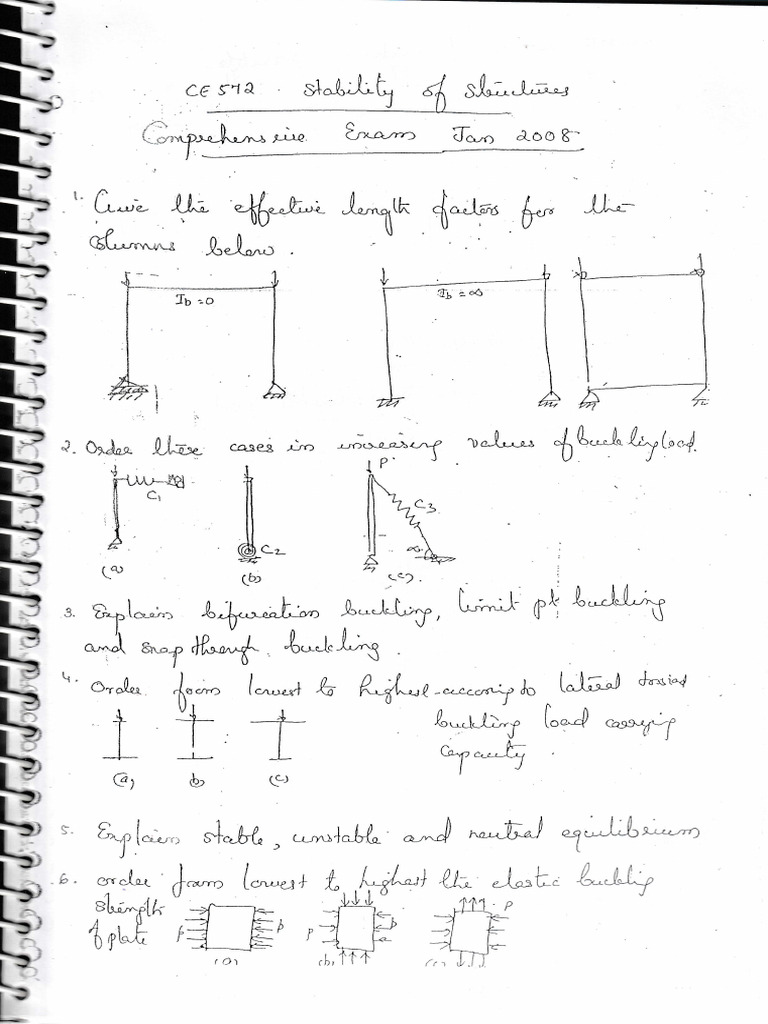 CE 572 Stability of Structures
Comprehensive Exam Jan 2008
1. Give the effective length factors for the
columns below.
Ib = 0 Ib = ∞
2. Order these cases in increasing values of buckling load.
P
C1 C2 C3
∝
(a) (b) (c).
3. Explain bifurcation buckling, limit pt buckling
and snap through buckling.
4. Order from lowest to highest according to lateral
buckling load carrying
capacity.
(a) b) (c)
5. Explain stable, unstable and neutral equilibrium
6. order from lowest to highest the elastic bucklig
strength
of plate
P P P P P
(a) (b) (c)